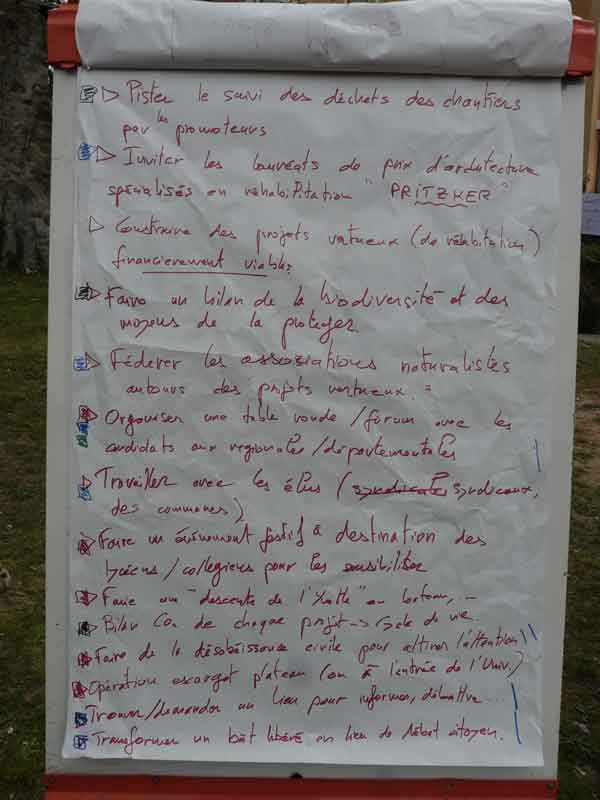 ▷ Pister le suivi des déchets des chantiers
par les promoteurs
▷ Inviter les lauréats de prix d'architecture
spécialisés en réhabilitation "PRITZKER"
▷ Construire des projets vertueux (de réhabitation)
financièrement viables
▷ Faire un bilan de la biodiversité et des
moyens de la protéger
▷ Féderer les associations naturalistes
autours des projets vertueux.
▷ Organiser une table ronde / forum avec les
candidats aux regionales / départementales
▷ Travailler avec les élus (syndicales syndicaux,
des communes)
▷ Faire un événement festif à destination des
lycéens / collégiens pour les sensibiliser
▷ Faire un "descente de l'Yvette" en bateau, ...
▷ Bilan CO2 de chaque projet → cycle de vie.
▷ Faire de la désobéissance civile pour attirer l'attention !!
▷ Opération escargot plateau (ou à l'entrée de l'Univ.)
▷ Trouver/demander un lieu pour informer, débattre ...
▷ Transformer un bât libéré en lieu de débat citoyen.